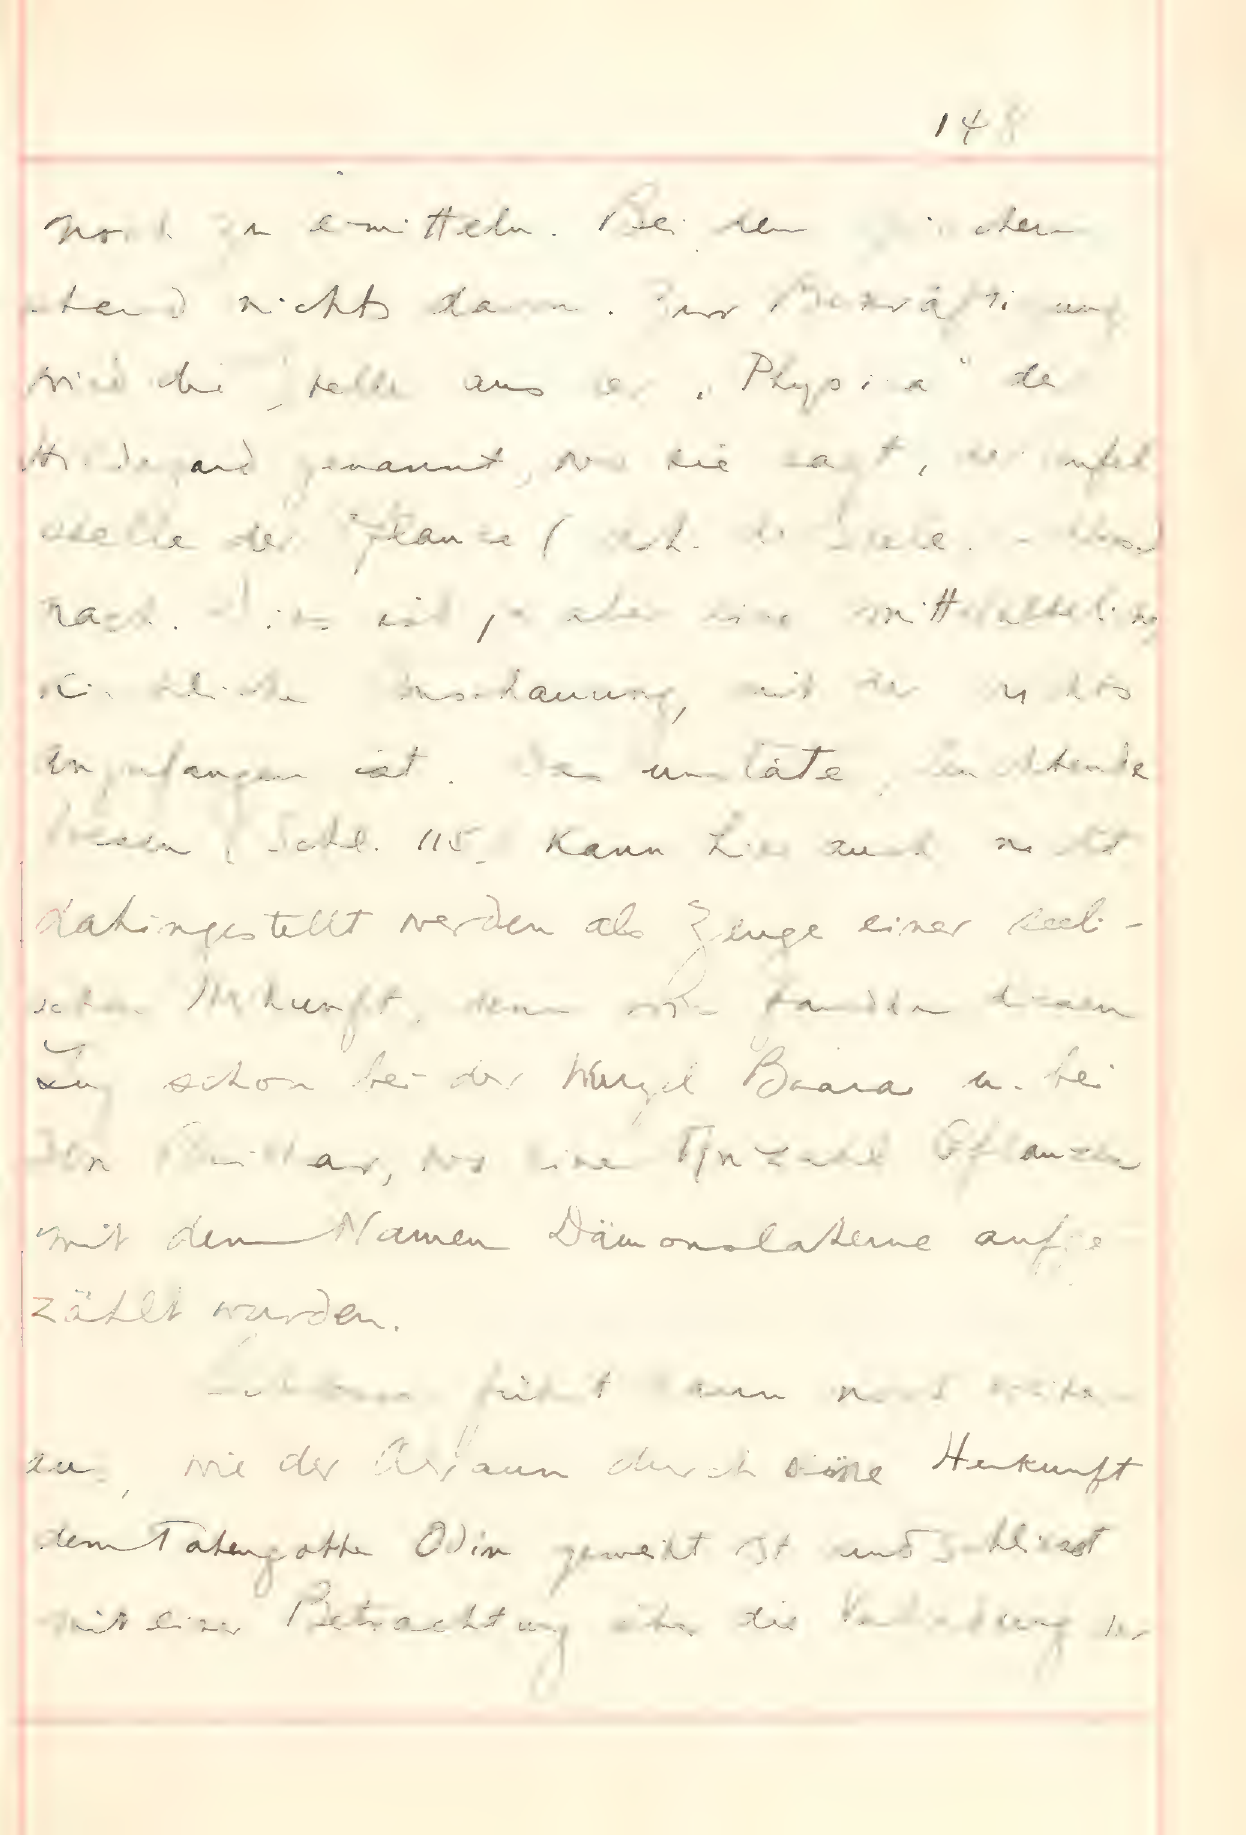 148
noch zu ermitteln. Bei den
stand nichts davon. Zur Bekräftigung
wird die Stelle aus der „Physica" der
Hildegard genannt, wo sie sagt, der Teufel
stelle der Pflanze (
nach. Dies ist ja aber eine mittelalterlich
kirchliche Anschauung, mit der nichts
anzufangen ist. Das unstäte, leuchtende
Wesen (Schl. 115) kann hier auch nicht
dahingestellt werden als Zeuge einer seeli-
schen Herkunft, denn wir fanden diesen
Zug schon bei der Wurzel Baara u. bei
den, wo eine Anzahl Pflanzen
mit dem Namen Dämonslaterne aufge
zählt wurden.
führt dann noch weiter
aus, wie der Alraun durch seine Herkunft
dem Totengotte Odin geweiht ist und schliesst
mit einer Betrachtung über die Verbindung der